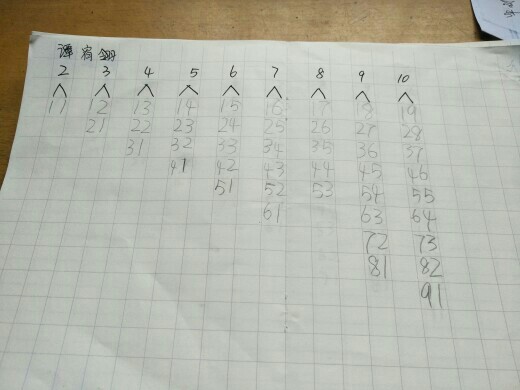 谭宵翎
2 3 4 5 6 7 8 9 10
11 12 13 14 15 16 17 18 19
21 22 23 24 25 26 27 28
31 32 33 34 35 36 37
41 42 43 44 45 46
51 52 53 54 55
61 63 64
72 73
81 82
91